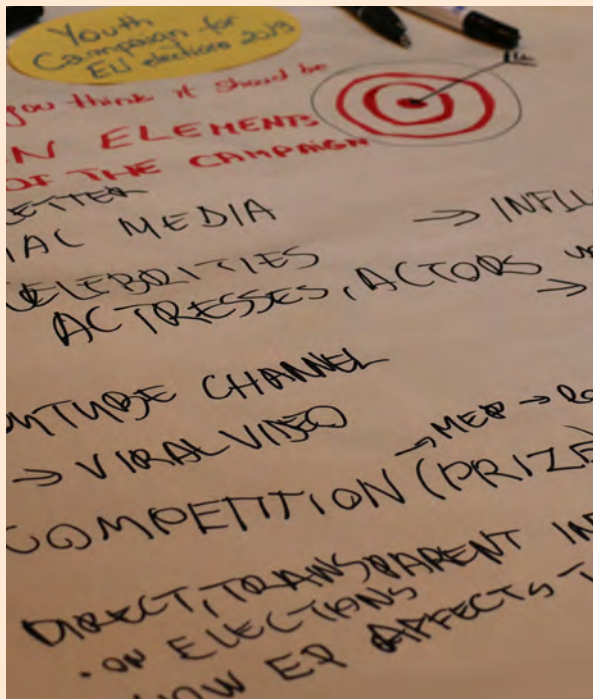 Youth
Campaign for
EU elections 2019
you think it should be
N ELEMENTS
OF THE CAMPAIGN
ETTER
IAC MEDIA → INFLU
CELEBRITIES
ACTRESSES, ACTORS
→
OUTUBE CHANNEL
→ VIRAL VIDEO
→ MEP →
COMPETITION (PRIZE)
DIRECT, TRANSPARENT IN
• ON ELECTIONS
HOW EP AFFECTS